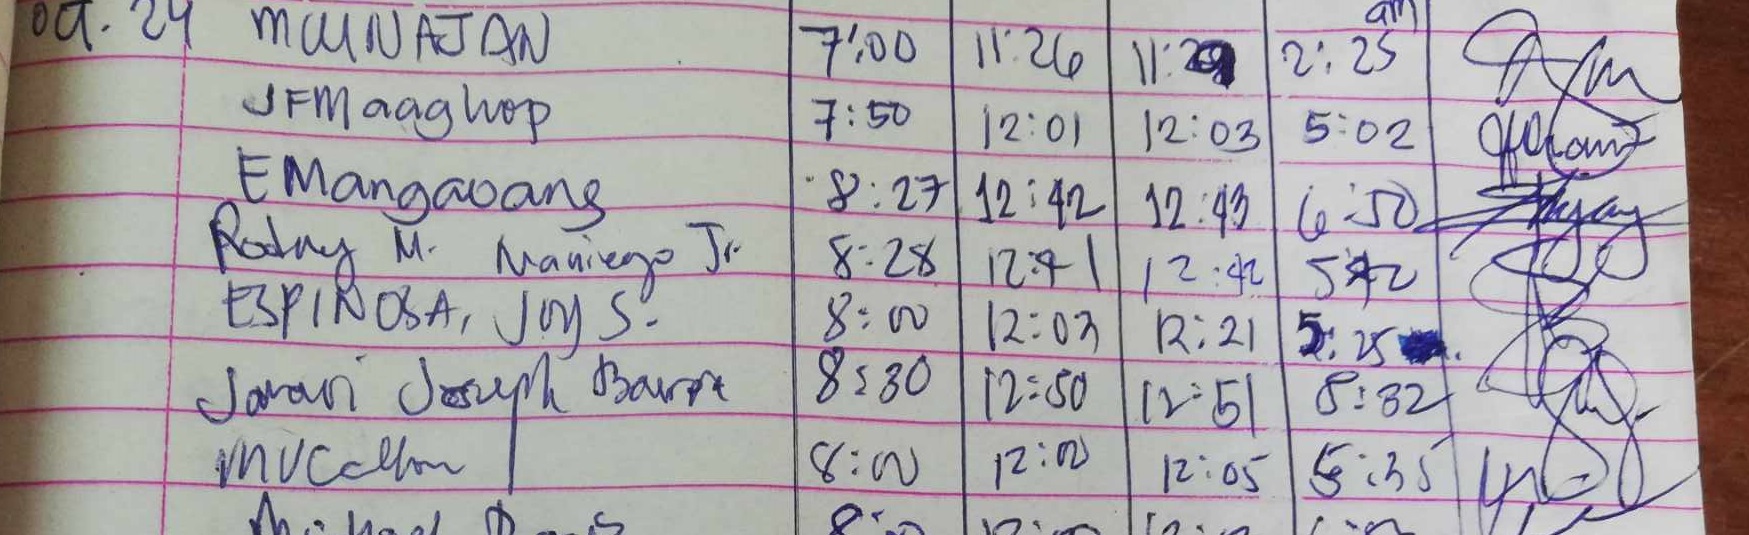 Oct. 24 MCUNAJAN 7:00 11:26 11:29 2:25 am
JFMaaghop 7:50 12:01 12:03 5:02
EMangaoang 8:27 12:42 12:43 6:50
Rodny M. Naniego Jr. 8:28 12:41 12:42 5:42
ESPINOSA, JOY S. 8:00 12:03 12:21 5:25
Joseph 8:30 12:50 12:51 8:32
8:00 12:00 12:05 5:35
Michael